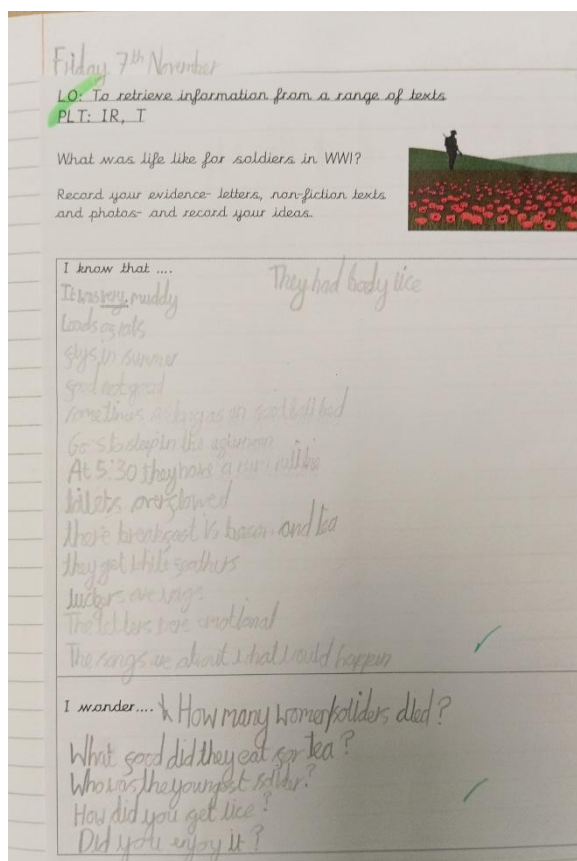 Friday 7th November
LO: To retrieve information from a range of texts
PLT: IR, T
What was life like for soldiers in WWI?
Record your evidence- letters, non-fiction texts
and photos- and record your ideas.
I know that ....
They had body lice
It was very muddy
Loads of rats
in summer
not good
sometimes as long as an football
Go to sleep in the afternoon
At 5:30 they have a rum
toilets overflowed
there breakfast is bacon and tea
they get white feathers
The letters were emotional
The songs are about what would happen
I wonder.... How many women soliders died?
What food did they eat for tea?
Who was the youngest solider?
How did you get lice?
Did you enjoy it?